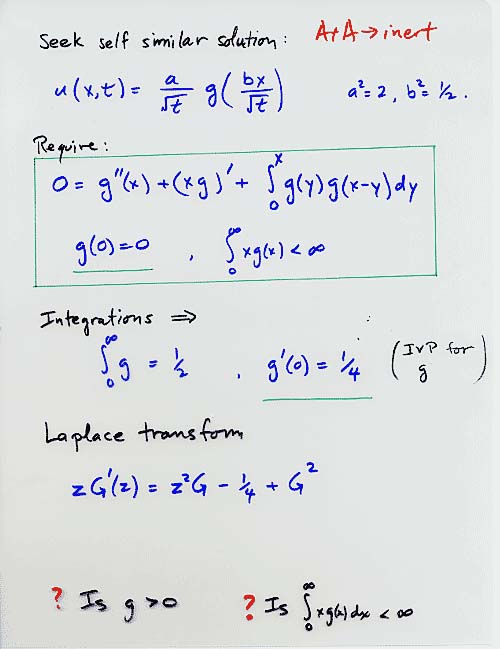 Seek self similar solution: A+A→inert
u(x,t) = a/√t g(bx/√t) a²=2, b²=½.
Require:
0 = g''(x) + (xg)' + ∫₀ˣ g(y)g(x-y)dy
g(0)=0 , ∫₀^∞ xg(x) < ∞
Integrations ⇒
∫₀^∞ g = ½ , g'(0) = ¼ (IVP for g)
Laplace transform
zG'(z) = z²G - ¼ + G²
? Is g>0 ? Is ∫₀^∞ xg(x)dx < ∞